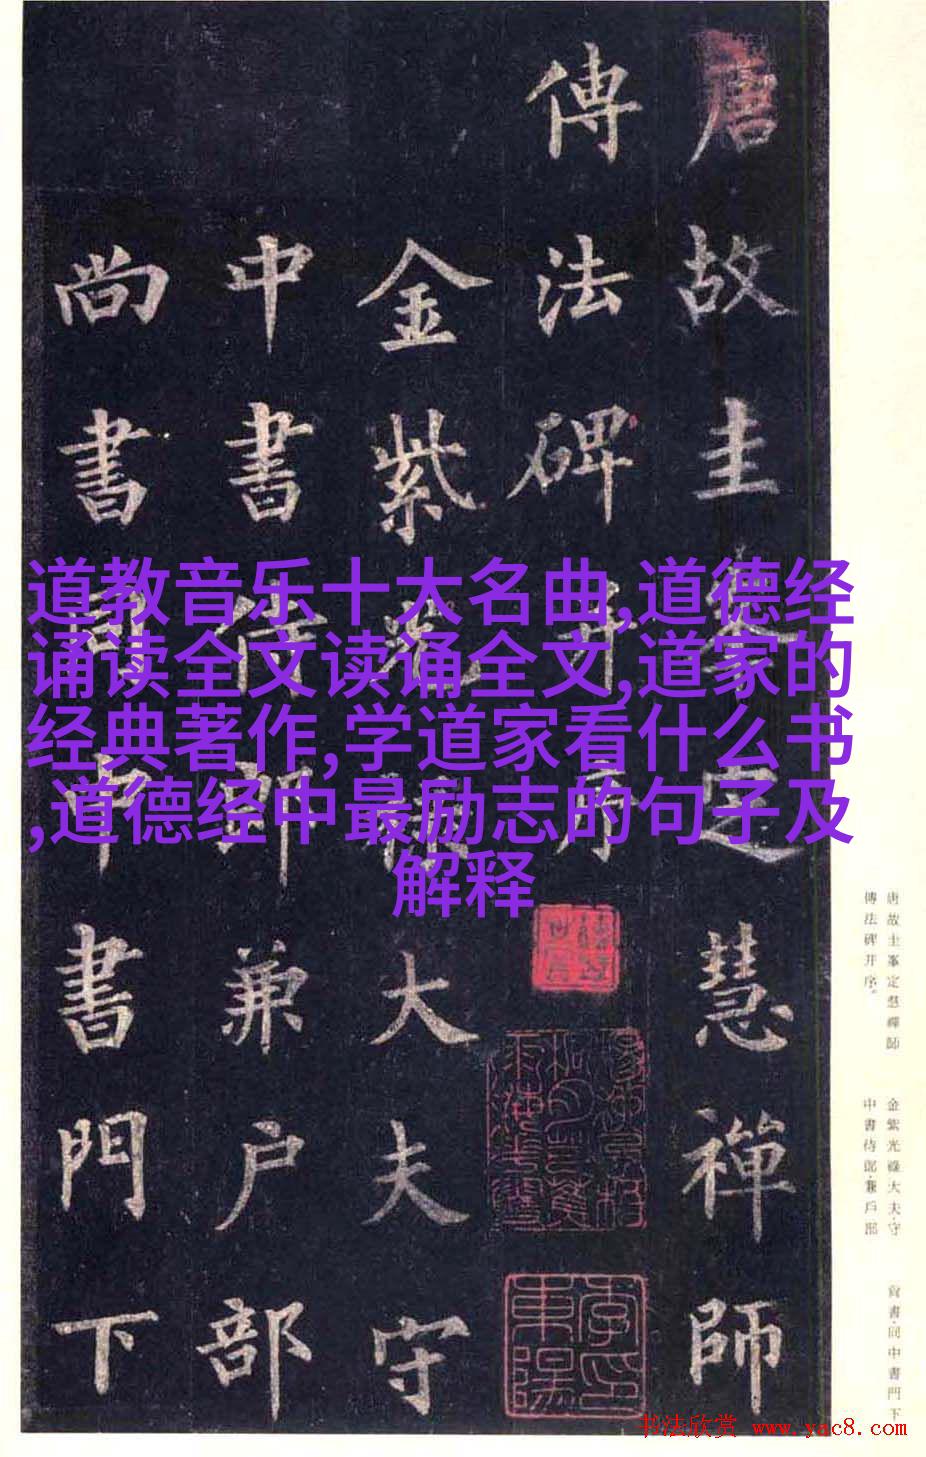 唐故圭峯定慧禪師
傳法碑并序
金紫光祿大夫守
中書侍郎兼户部
尚書同中書門下
道教音乐十大名曲,道德经
诵读全文读诵全文,道家的
经典著作,学道家看什么书
,道德经中最励志的句子及
解释
唐故圭峯定慧禪師
傳法碑并序。
金紫光祿大夫·守
中書侍郎·兼戶部
尚書·同中書門下
书法欣赏 www.yac8.com